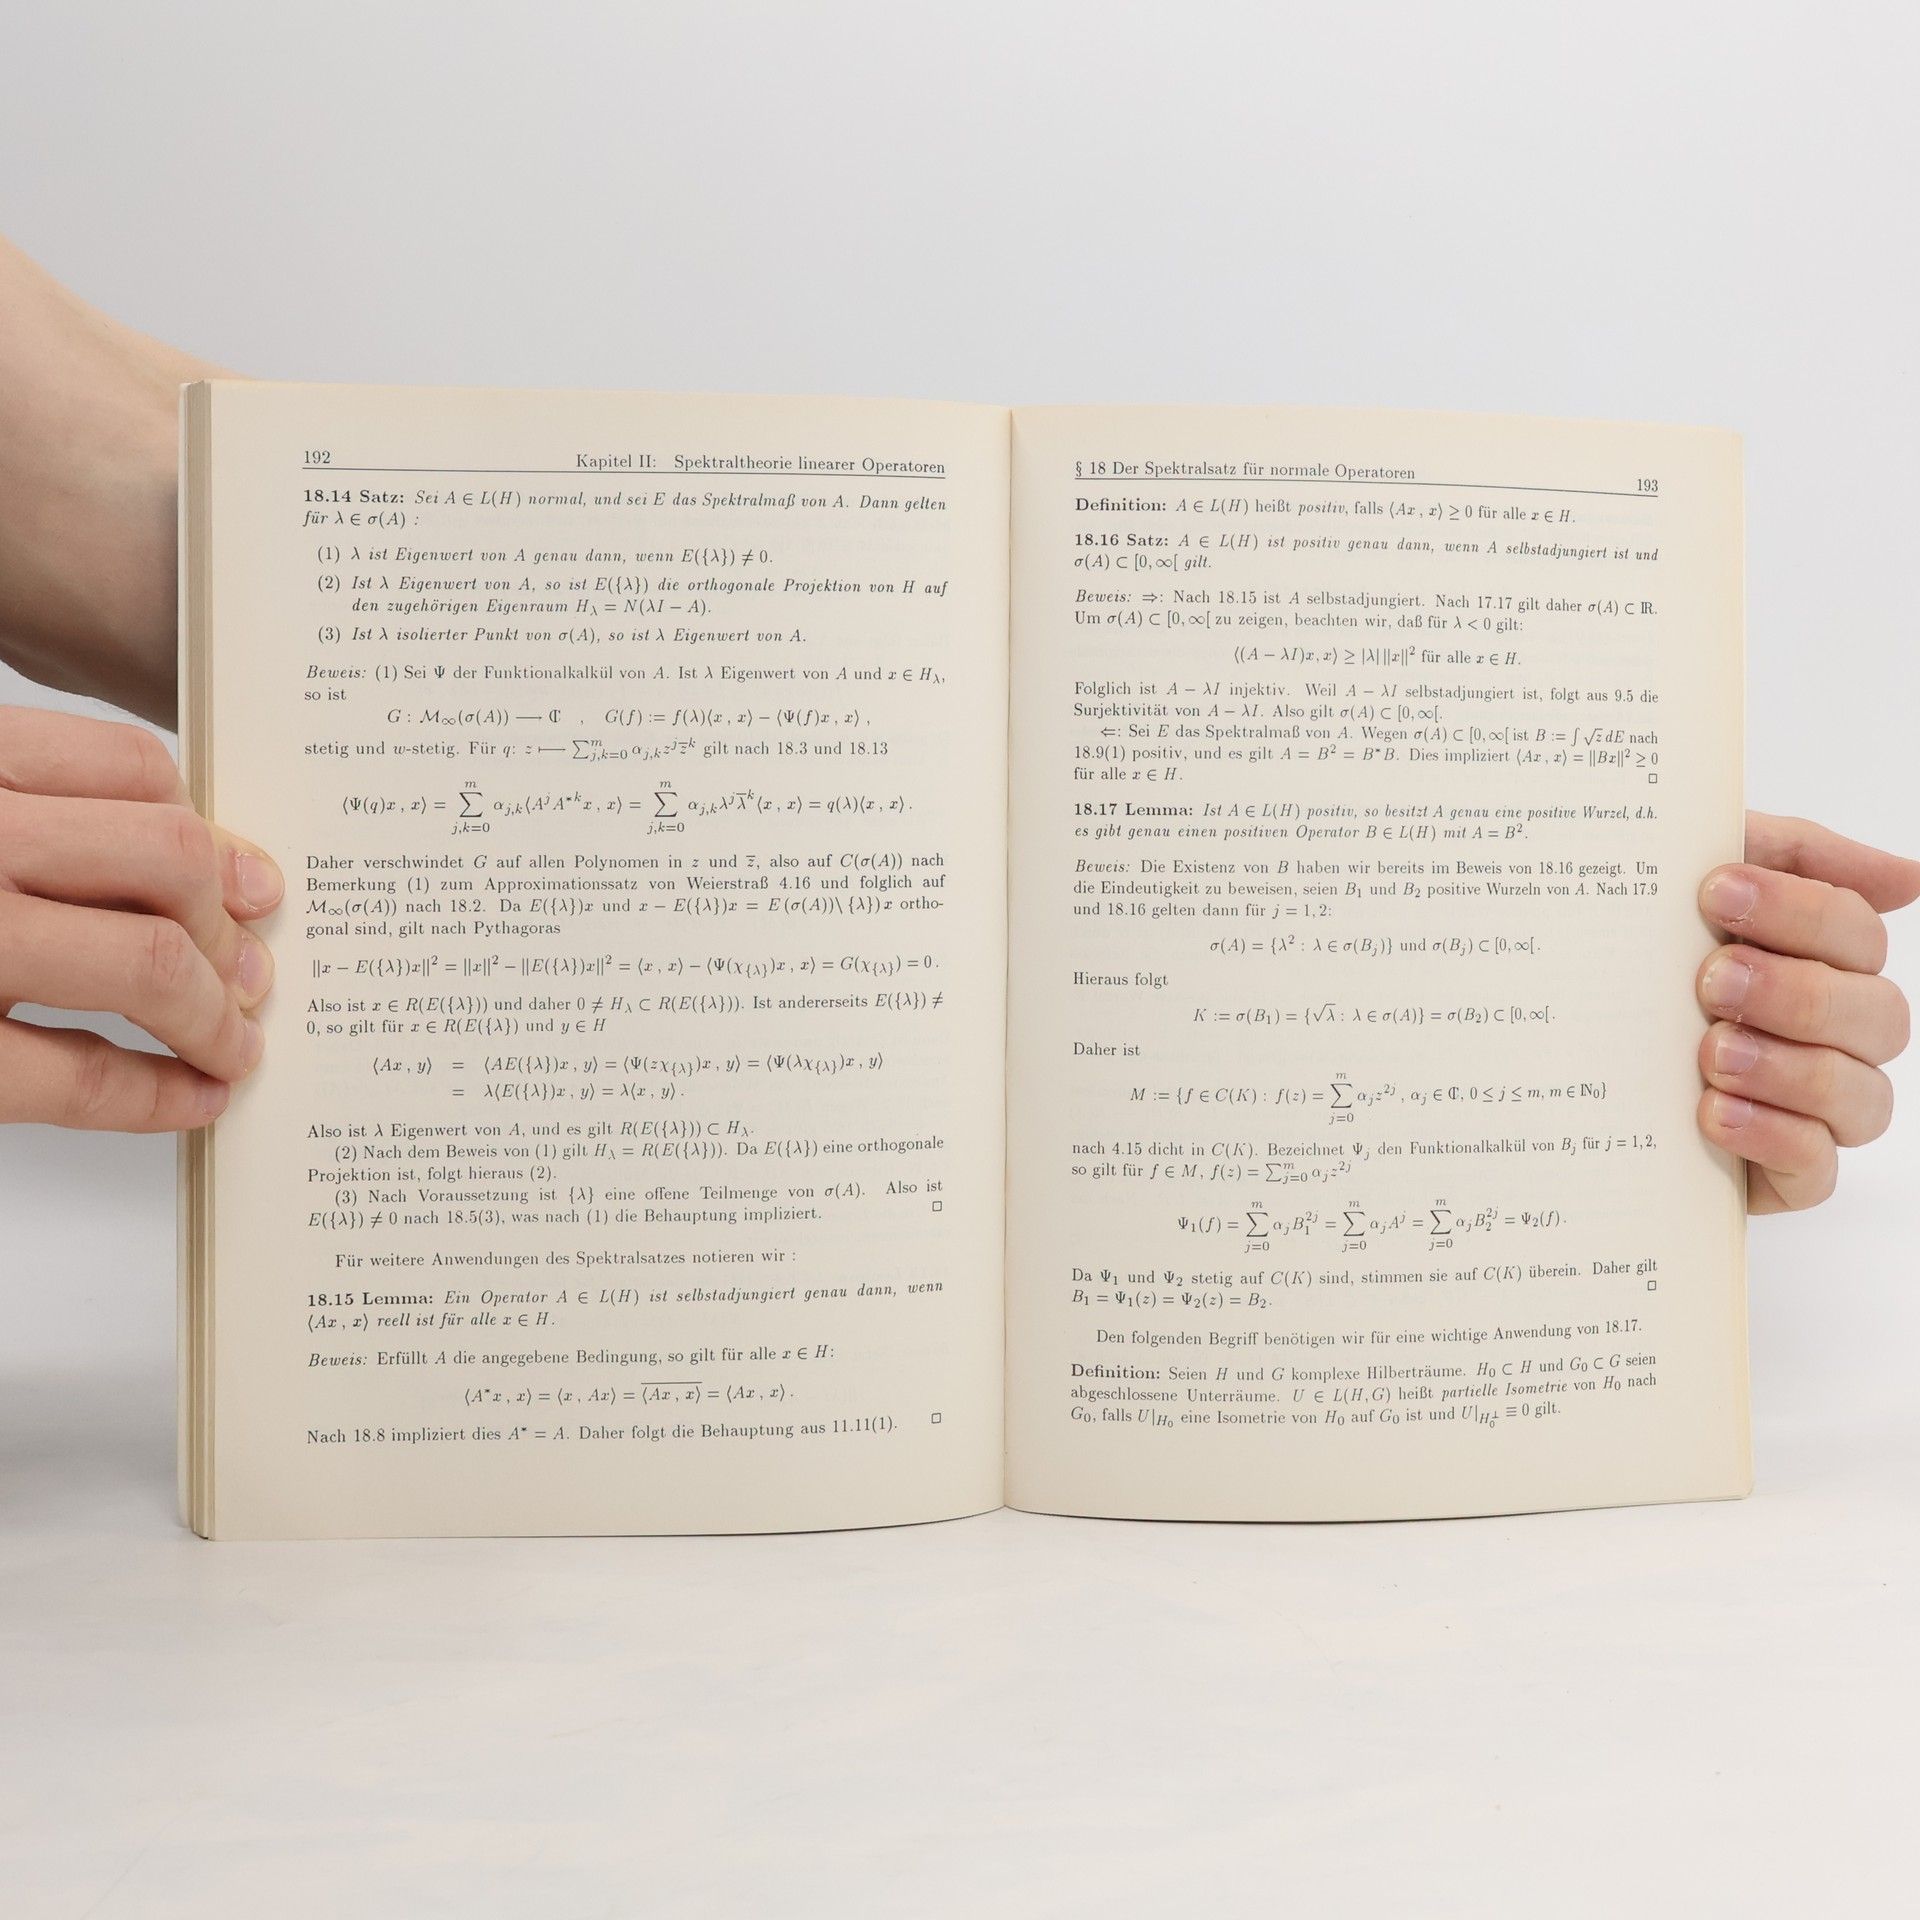 192 Kapitel II: Spektraltheorie linearer Operatoren
18.14 Satz: Sei A ∈ L(H) normal, und sei E das Spektralmaß von A. Dann gelten
für λ ∈ σ(A) :
(1) λ ist Eigenwert von A genau dann, wenn E({λ}) ≠ 0.
(2) Ist λ Eigenwert von A, so ist E({λ}) die orthogonale Projektion von H auf
den zugehörigen Eigenraum H_λ = N(λI − A).
(3) Ist λ isolierter Punkt von σ(A), so ist λ Eigenwert von A.
Beweis: (1) Sei Ψ der Funktionalkalkül von A. Ist λ Eigenwert von A und x ∈ H_λ,
so ist
G : M_∞(σ(A)) ⟶ ℂ , G(f) := f(λ)⟨x , x⟩ − ⟨Ψ(f)x , x⟩ ,
stetig und w-stetig. Für q: z ⟼ ∑_{j,k=0}^m α_{j,k} z^j z̄^k gilt nach 18.3 und 18.13
⟨Ψ(q)x , x⟩ = ∑_{j,k=0}^m α_{j,k}⟨A^j A*^k x , x⟩ = ∑_{j,k=0}^m α_{j,k} λ^j λ̄^k ⟨x , x⟩ = q(λ)⟨x , x⟩ .
Daher verschwindet G auf allen Polynomen in z und z̄, also auf C(σ(A)) nach
Bemerkung (1) zum Approximationssatz von Weierstraß 4.16 und folglich auf
M_∞(σ(A)) nach 18.2. Da E({λ})x und x − E({λ})x = E (σ(A))\ {λ}) x ortho-
gonal sind, gilt nach Pythagoras
||x − E({λ})x||² = ||x||² − ||E({λ})x||² = ⟨x , x⟩ − ⟨Ψ(χ_{λ})x , x⟩ = G(χ_{λ}) = 0 .
Also ist x ∈ R(E({λ})) und daher 0 ≠ H_λ ⊂ R(E({λ})). Ist andererseits E({λ}) ≠
0, so gilt für x ∈ R(E({λ}) und y ∈ H
⟨Ax , y⟩ = ⟨AE({λ})x , y⟩ = ⟨Ψ(zχ_{λ})x , y⟩ = ⟨Ψ(λχ_{λ})x , y⟩
= λ⟨E({λ})x , y⟩ = λ⟨x , y⟩ .
Also ist λ Eigenwert von A, und es gilt R(E({λ})) ⊂ H_λ.
(2) Nach dem Beweis von (1) gilt H_λ = R(E({λ})). Da E({λ}) eine orthogonale
Projektion ist, folgt hieraus (2).
(3) Nach Voraussetzung ist {λ} eine offene Teilmenge von σ(A). Also ist
E({λ}) ≠ 0 nach 18.5(3), was nach (1) die Behauptung impliziert. □
Für weitere Anwendungen des Spektralsatzes notieren wir :
18.15 Lemma: Ein Operator A ∈ L(H) ist selbstadjungiert genau dann, wenn
⟨Ax , x⟩ reell ist für alle x ∈ H.
Beweis: Erfüllt A die angegebene Bedingung, so gilt für alle x ∈ H:
⟨A*x , x⟩ = ⟨x , Ax⟩ = \overline{⟨Ax , x⟩} = ⟨Ax , x⟩ .
Nach 18.8 impliziert dies A* = A. Daher folgt die Behauptung aus 11.11(1). □
§ 18 Der Spektralsatz für normale Operatoren 193
Definition: A ∈ L(H) heißt positiv, falls ⟨Ax , x⟩ ≥ 0 für alle x ∈ H.
18.16 Satz: A ∈ L(H) ist positiv genau dann, wenn A selbstadjungiert ist und
σ(A) ⊂ [0, ∞[ gilt.
Beweis: ⇒: Nach 18.15 ist A selbstadjungiert. Nach 17.17 gilt daher σ(A) ⊂ ℝ.
Um σ(A) ⊂ [0, ∞[ zu zeigen, beachten wir, daß für λ < 0 gilt:
⟨(A − λI)x, x⟩ ≥ |λ| ||x||² für alle x ∈ H.
Folglich ist A − λI injektiv. Weil A − λI selbstadjungiert ist, folgt aus 9.5 die
Surjektivität von A − λI. Also gilt σ(A) ⊂ [0, ∞[.
⇐: Sei E das Spektralmaß von A. Wegen σ(A) ⊂ [0, ∞[ ist B := ∫ √z dE nach
18.9(1) positiv, und es gilt A = B² = B*B. Dies impliziert ⟨Ax , x⟩ = ||Bx||² ≥ 0
für alle x ∈ H. □
18.17 Lemma: Ist A ∈ L(H) positiv, so besitzt A genau eine positive Wurzel, d.h.
es gibt genau einen positiven Operator B ∈ L(H) mit A = B².
Beweis: Die Existenz von B haben wir bereits im Beweis von 18.16 gezeigt. Um
die Eindeutigkeit zu beweisen, seien B₁ und B₂ positive Wurzeln von A. Nach 17.9
und 18.16 gelten dann für j = 1, 2:
σ(A) = {λ² : λ ∈ σ(B_j)} und σ(B_j) ⊂ [0, ∞[ .
Hieraus folgt
K := σ(B₁) = {√λ : λ ∈ σ(A)} = σ(B₂) ⊂ [0, ∞[ .
Daher ist
M := {f ∈ C(K) : f(z) = ∑_{j=0}^m α_j z^{2j} , α_j ∈ ℂ, 0 ≤ j ≤ m, m ∈ ℕ₀}
nach 4.15 dicht in C(K). Bezeichnet Ψ_j den Funktionalkalkül von B_j für j = 1, 2,
so gilt für f ∈ M, f(z) = ∑_{j=0}^m α_j z^{2j}
Ψ₁(f) = ∑_{j=0}^m α_j B₁^{2j} = ∑_{j=0}^m α_j A^j = ∑_{j=0}^m α_j B₂^{2j} = Ψ₂(f) .
Da Ψ₁ und Ψ₂ stetig auf C(K) sind, stimmen sie auf C(K) überein. Daher gilt
B₁ = Ψ₁(z) = Ψ₂(z) = B₂. □
Den folgenden Begriff benötigen wir für eine wichtige Anwendung von 18.17.
Definition: Seien H und G komplexe Hilberträume. H₀ ⊂ H und G₀ ⊂ G seien
abgeschlossene Unterräume. U ∈ L(H, G) heißt partielle Isometrie von H₀ nach
G₀, falls U|_{H₀} eine Isometrie von H₀ auf G₀ ist und U|_{H₀^⊥} ≡ 0 gilt.